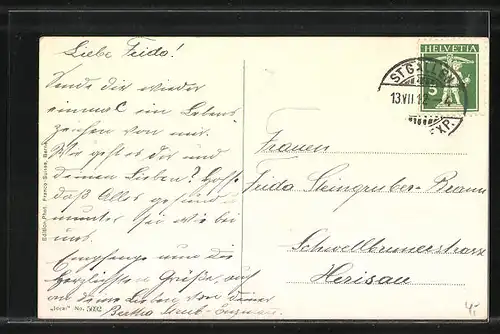 Liebe Frida!
Sende dir wieder
einmal ein Lebens
zeichen von mir.
Wie geht es dir und
deinen Lieben? Hoffe
daß Alles gesund
munter sei wie bei
uns.
Empfange nun die
herzlichsten Grüße, auf
an deine Lieben von deiner
Bertha
HELVETIA
5
ST. GALLEN
13.VII.12
EXP.
Frauen
Frida Steingruber-Braun
Schwellbrunnerstrasse
Herisau
Edition Phot. Franco-Suisse, Berne
„Jocal" No. 5002